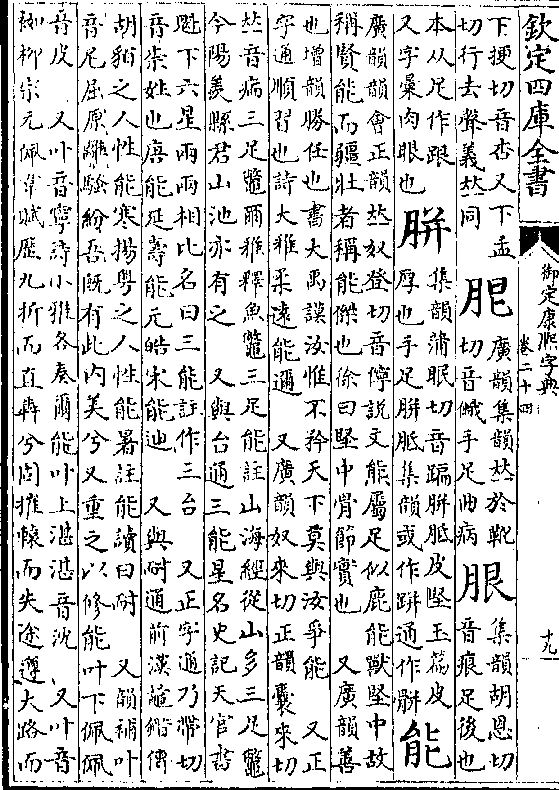 欽定四庫全書
御定康熙字典
卷二十四
十九
下梗切音杏又下孟
切行去聲義𠀤同
廣韻集韻𠀤於靴
切音 手足曲病
集韻胡恩切
音痕足後也
本从足作跟
又字彙肉眼也
胼
集韻蒲眠切音蹁胼胝皮堅玉篇皮
厚也手足胼胝集韻或作跰通作骿
能
廣韻韻會正韻𠀤奴登切音儜說文能屬足似鹿能獸堅中故
稱賢能而彊壯者稱能傑也徐曰堅中骨節實也 又廣韻善
也增韻勝任也書大禹謨汝惟不矜天下莫與汝爭能 又正
字通順習也詩大雅柔遠能邇 又廣韻奴來切正韻囊來切
𠀤音 三足鼈爾雅釋魚鼈三足能註山海經從山多三足鼈
今陽羨縣君山池亦有之 又與台通三能星名史記天官書
魁下六星兩兩相比名曰三能註作三台 又正字通乃帶切
音柰姓也唐能延壽能元皓宋能迪 又與耐通前漢鼂錯傳
胡貊之人性能寒揚粵之人性能暑註能讀曰耐 又韻補叶
音尼屈原離騷紛吾既有此內美兮又重之以修能叶下佩佩
音皮 又叶音寧詩小雅各奏爾能叶上湛湛音沈 又叶音
柳宗元佩韋賦歷九折而直奔兮固摧轅而失途遵大路而